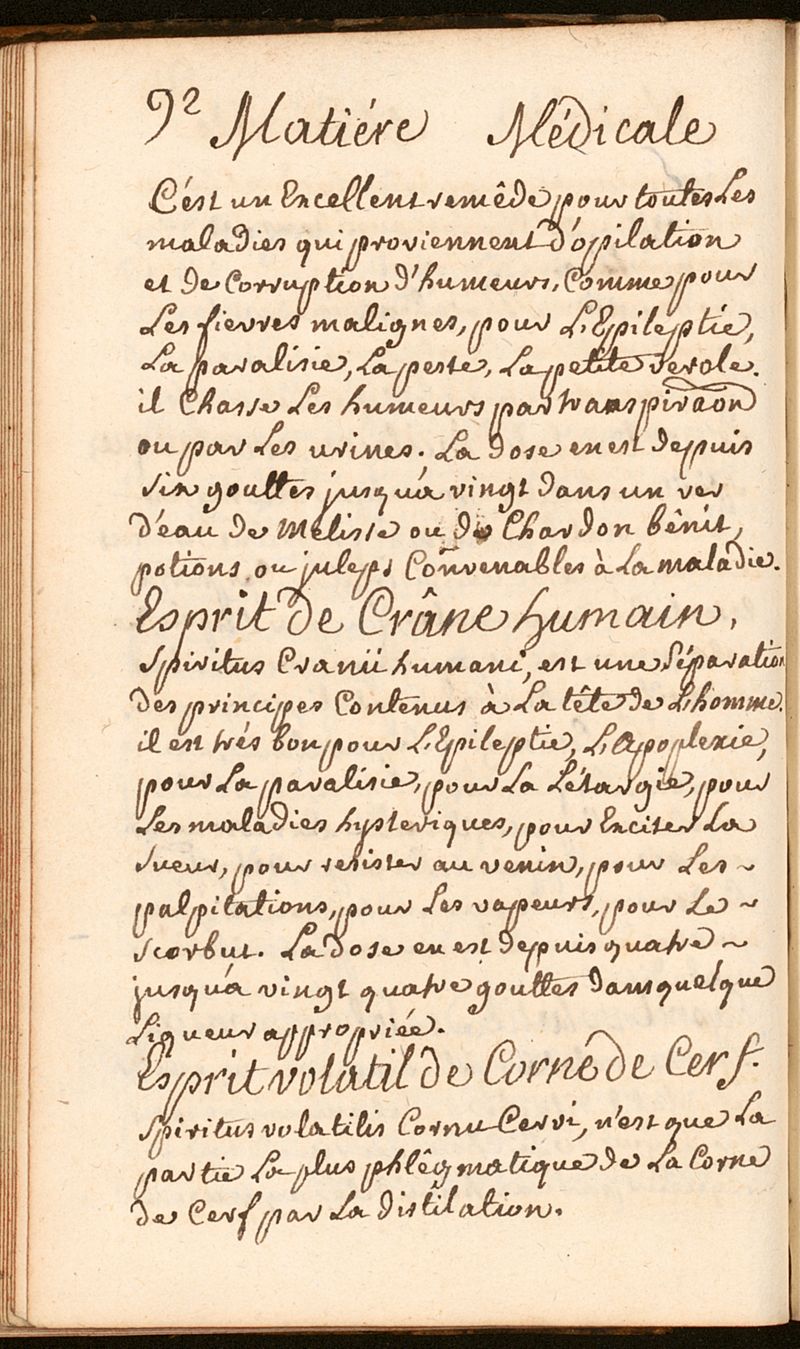 92 Matiére Médicale
C'est un Excellent remêde pour toutes Les
maladies qui proviennent d'opilation
et de Corruption d'humeurs, Comme pour
Les fievres malignes, pour L'Epileptie,
La paralisie, La peste, La petite verole.
il Chasse Les humeurs par transpiraõn
ou par Les urines. La dose en est depuis
six gouttes jusqu'à vingt dans un ver
d'eau de Mélisse ou de Chardon bênit,
potions, ou juleps Convenables à La maladie.
Esprit de Crâne humain,
Spiritus Cranii humani, est une Séparation
des principes Contenus à La tête de L'homme.
il est trés bon pour L'Epileptie, L'Apoplexie,
pour La paralisie, pour La Létargie, pour
Les maladies hysteriques, pour Exciter La
Sueur, pour resister au venin, pour Les ~
palpitations, pour Les vapeurs, pour Le ~
scorbut. La dose en est depuis quatre ~
jusqu'à vingt quatre gouttes dans quelque
Liqueur appropriée.
Esprit volatil de Corne de Cerf.
Spiritus volatilis Cornu Cervi, n'est que La
partie La plus phlêgmatique de La Corne
de Cerf par La distilation.